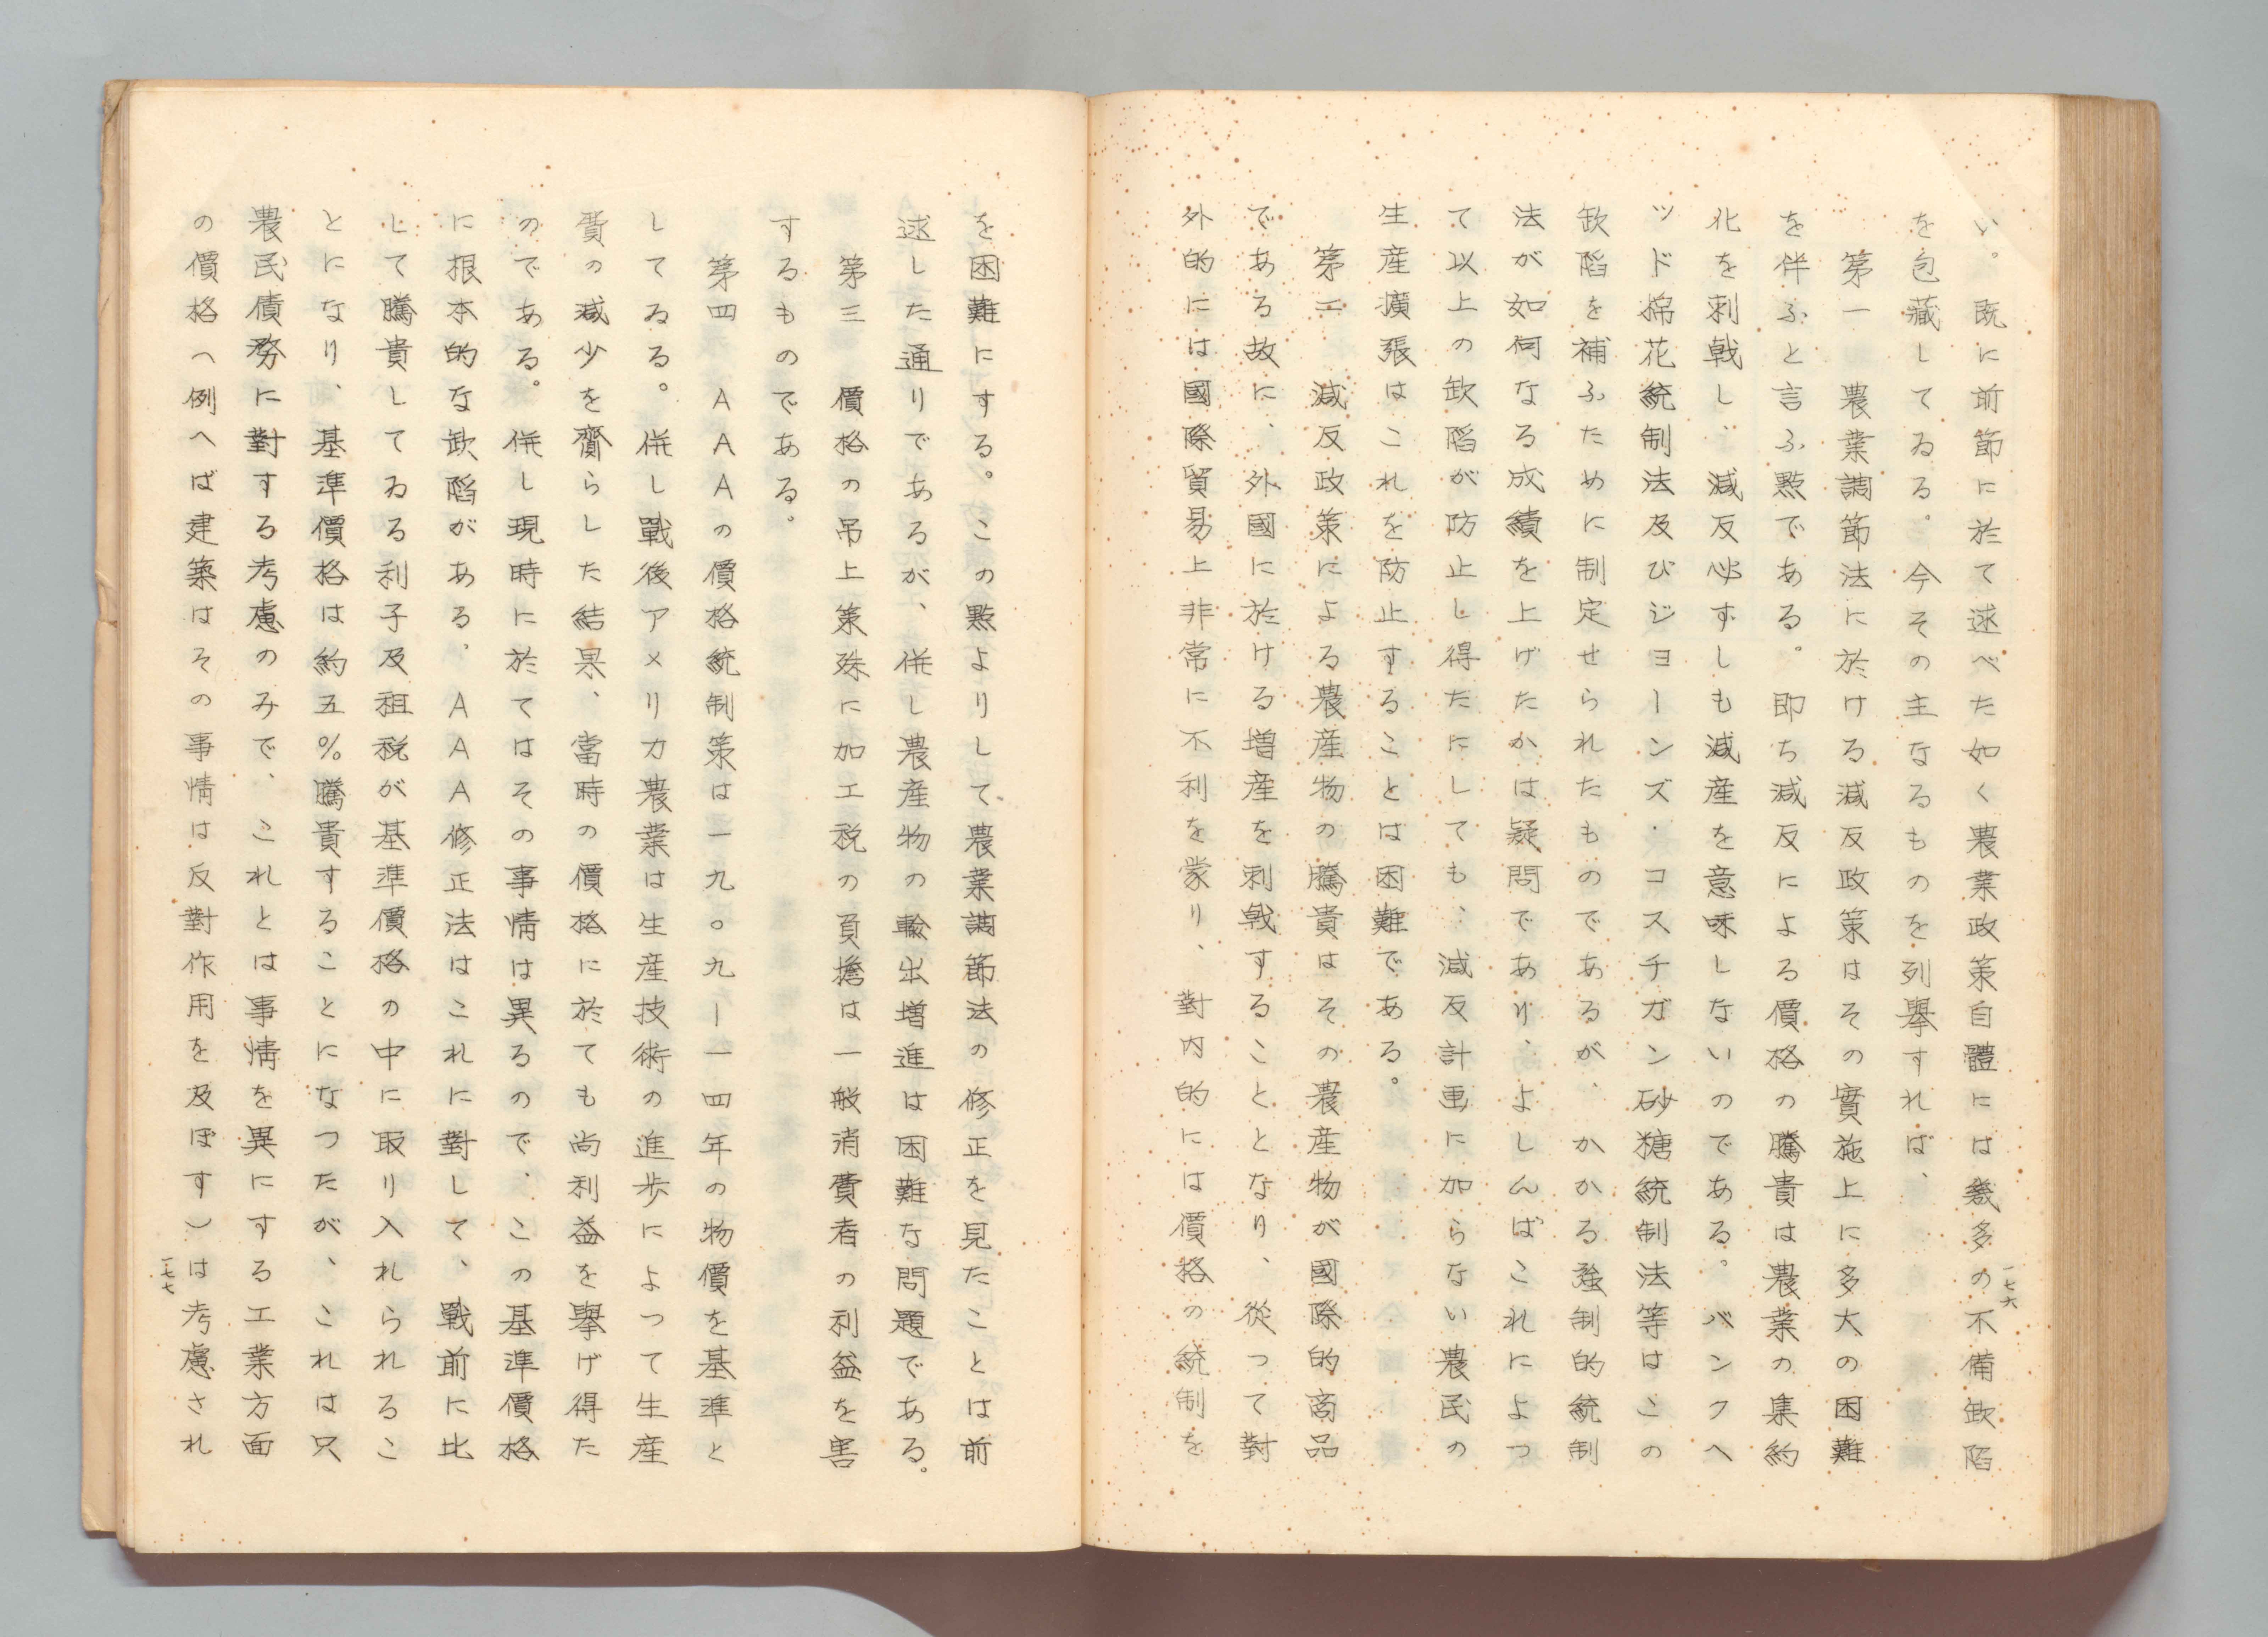 い。既に前節に於て述べた如く農業政策自體には幾多の不備缺陷
を包藏してゐる。今その主なるものを列擧すれば、
第一　農業調節法に於ける減反政策はその實施上に多大の困難
を伴ふと言ふ點である。即ち減反による價格の騰貴は農業の集約
化を刺戟し、減反必ずしも減産を意味しないのである。バンクヘ
ツド棉花統制法及びジヨーンズ・コスチガン砂糖統制法等はこの
缺陷を補ふために制定せられたものであるが、かかる强制的統制
法が如何なる成績を上げたかは疑問であり、よしんばこれによつ
て以上の缺陷が防止し得たにしても、減反計画に加らない農民の
生産擴張はこれを防止することは困難である。
第二　減反政策による農産物の騰貴はその農産物が國際的商品
である故に、外國に於ける增産を刺戟することとなり、從つて對
外的には國際貿易上非常に不利を蒙り、對内的には價格の統制を
一七六
を困難にする。この點よりして農業調節法の修正を見たことは前
述した通りであるが、併し農産物の輸出增進は困難な問題である。
第三　價格の吊上策殊に加工税の負擔は一般消費者の利益を害
するものである。
第四　AAAの價格統制策は一九〇九ー一四年の物價を基準と
してゐる。併し戰後アメリカ農業は生産技術の進歩によつて生産
費の減少を齎らした結果、當時の價格に於ても尚利益を擧げ得た
のである。併し現時に於てはその事情は異るので、この基準價格
に根本的な缺陷がある。AAA修正法はこれに對して、戰前に比
して騰貴してゐる利子及租税が基準價格の中に取り入れられるこ
とになり、基準價格は約五%騰貴することになつたが、これは只
農民債務に對する考慮のみで、これとは事情を異にする工業方面
の價格（例へば建築はその事情は反對作用を及ぼす）は考慮され
一七七